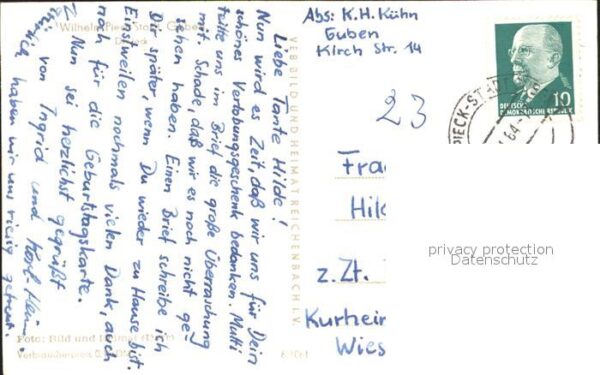 Liebe Tante Hilde!
Nun wird es Zeit, daß wir uns für Dein
schönes Verlobungsgeschenk bedanken. Mutti
teilte uns im Brief die große Überraschung
mit. Schade, daß wir es noch nicht ge-
sehen haben. Einen Brief schreibe ich
Dir später, wenn Du wieder zu Hause bist.
Einstweilen nochmals vielen Dank, auch
noch für die Geburtstagskarte.
Nun sei herzlichst gegrüßt
von Ingrid und Karl-Hein
haben wir uns riesig gefreut.
Wilhelm-Pieck-Stadt Guben
Foto: Bild und Heimat
Verbraucherpreis
VEB BILD UND HEIMAT REICHENBACH I. V.
Abs: K.H. Kühn
Guben
Kirch Str. 14
23
DEUTSCHE
DEMOKRATISCHE REPUBLIK
10
PIECK-STADT
64
Fra
Hil
z. Zt.
Kurhei
Wies
privacy protection
Datenschutz